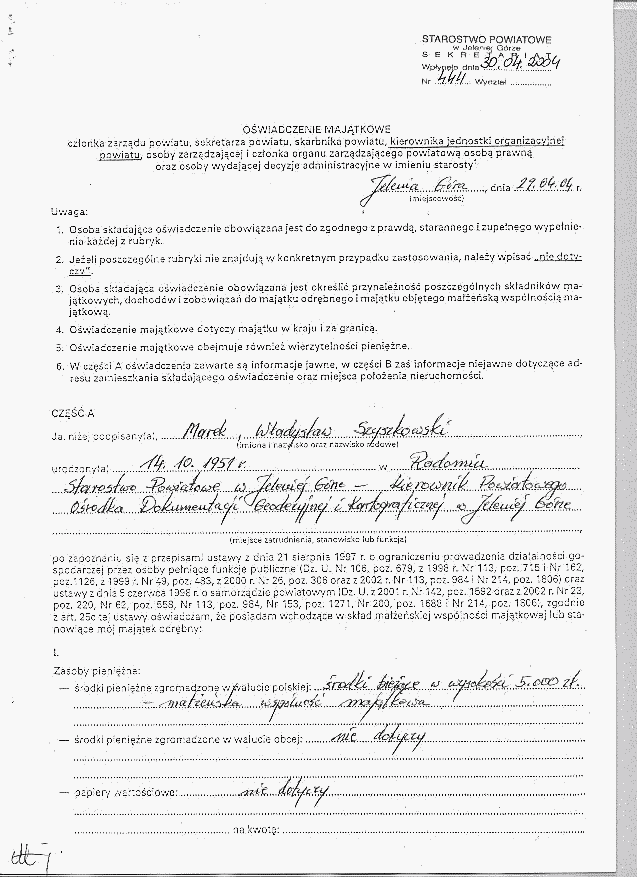 STAROSTWO POWIATOWE
w Jeleniej Górze
SEKRETARIAT
Wpłynęło dnia 30.04.2004
Nr 444 Wydział
OŚWIADCZENIE MAJĄTKOWE
członka zarządu powiatu, sekretarza powiatu, skarbnika powiatu, kierownika jednostki organizacyjnej
powiatu, osoby zarządzającej i członka organu zarządzającego powiatową osobą prawną
oraz osoby wydającej decyzje administracyjne w imieniu starosty
Jelenia Góra, dnia 29.04.04 r.
(miejscowość)
Uwaga:
1. Osoba składająca oświadczenie obowiązana jest do zgodnego z prawdą, starannego i zupełnego wypełnie-
nia każdej z rubryk.
2. Jeżeli poszczególne rubryki nie znajdują w konkretnym przypadku zastosowania, należy wpisać „nie doty-
czy".
3. Osoba składająca oświadczenie obowiązana jest określić przynależność poszczególnych składników ma-
jątkowych, dochodów i zobowiązań do majątku odrębnego i majątku objętego małżeńską wspólnością ma-
jątkową.
4. Oświadczenie majątkowe dotyczy majątku w kraju i za granicą.
5. Oświadczenie majątkowe obejmuje również wierzytelności pieniężne.
6. W części A oświadczenia zawarte są informacje jawne, w części B zaś informacje niejawne dotyczące ad-
resu zamieszkania składającego oświadczenie oraz miejsca położenia nieruchomości.
CZĘŚĆ A
Ja, niżej podpisany(a), Marek, Władysław Szyszkowski
(imiona i nazwisko oraz nazwisko rodowe)
urodzony(a) 14. 10. 1951 r. w Radomiu
Starostwo Powiatowe w Jeleniej Górze – Kierownik Powiatowego
Ośrodka Dokumentacji Geodezyjnej i Kartograficznej w Jeleniej Górze
(miejsce zatrudnienia, stanowisko lub funkcja)
po zapoznaniu się z przepisami ustawy z dnia 21 sierpnia 1997 r. o ograniczeniu prowadzenia działalności go-
spodarczej przez osoby pełniące funkcje publiczne (Dz. U. Nr 106, poz. 679, z 1998 r. Nr 113, poz. 715 i Nr 162,
poz. 1126, z 1999 r. Nr 49, poz. 483, z 2000 r. Nr 26, poz. 306 oraz z 2002 r. Nr 113, poz. 984 i Nr 214, poz. 1806) oraz
ustawy z dnia 5 czerwca 1998 r. o samorządzie powiatowym (Dz. U. z 2001 r. Nr 142, poz. 1592 oraz z 2002 r. Nr 23,
poz. 220, Nr 62, poz. 558, Nr 113, poz. 984, Nr 153, poz. 1271, Nr 200, poz. 1688 i Nr 214, poz. 1806), zgodnie
z art. 25c tej ustawy oświadczam, że posiadam wchodzące w skład małżeńskiej wspólności majątkowej lub sta-
nowiące mój majątek odrębny:
I.
Zasoby pieniężne:
— środki pieniężne zgromadzone w walucie polskiej: środki bieżące w wysokości 5.000 zł.
– małżeńska wspólność majątkowa
— środki pieniężne zgromadzone w walucie obcej: nie dotyczy
— papiery wartościowe: nie dotyczy
na kwotę: